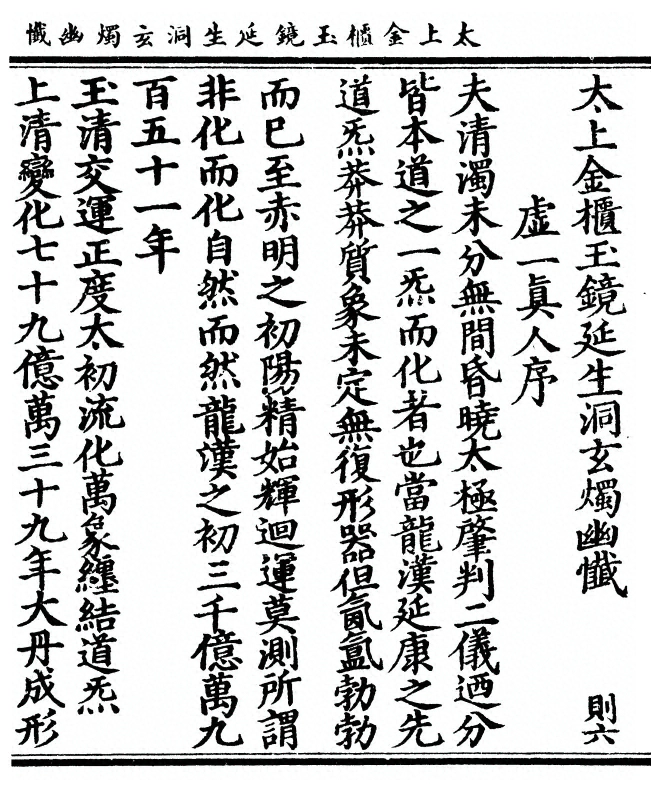 太上金櫃玉鏡延生洞玄燭幽懺
太上金櫃玉鏡延生洞玄燭幽懺 則六
虛一眞人序
夫清濁未分無間昏曉太極肇判二儀迺分
皆本道之一炁而化者也當龍漢延康之先
道炁莽莽質象未定無復形器但氤氳勃勃
而已至赤明之初陽精始輝迴運莫測所謂
非化而化自然而然龍漢之初三千億萬九
百五十一年
玉清交運正度太初流化萬彖纏結道炁
上清變化七十九億萬三十九年大丹成形